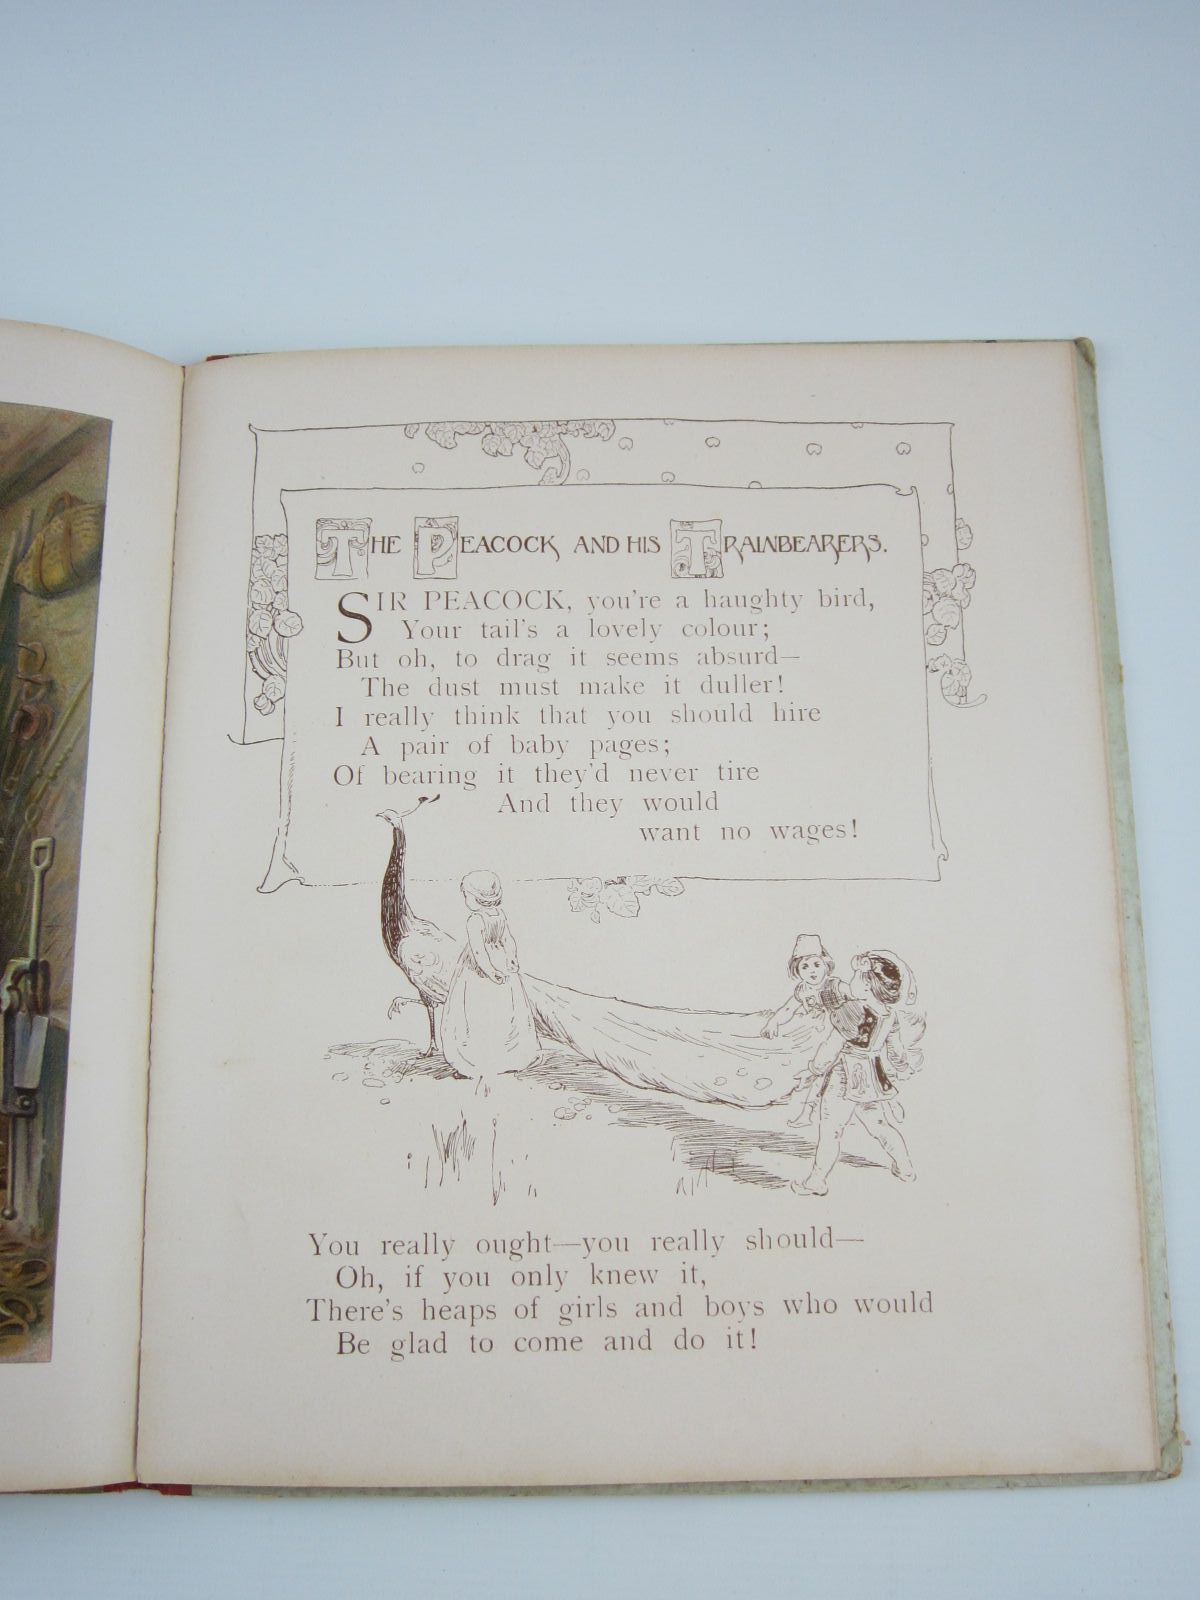 THE PEACOCK AND HIS TRAINBEARERS.
SIR PEACOCK, you're a haughty bird,
Your tail's a lovely colour;
But oh, to drag it seems absurd—
The dust must make it duller!
I really think that you should hire
A pair of baby pages;
Of bearing it they'd never tire
And they would
want no wages!
You really ought—you really should—
Oh, if you only knew it,
There's heaps of girls and boys who would
Be glad to come and do it!